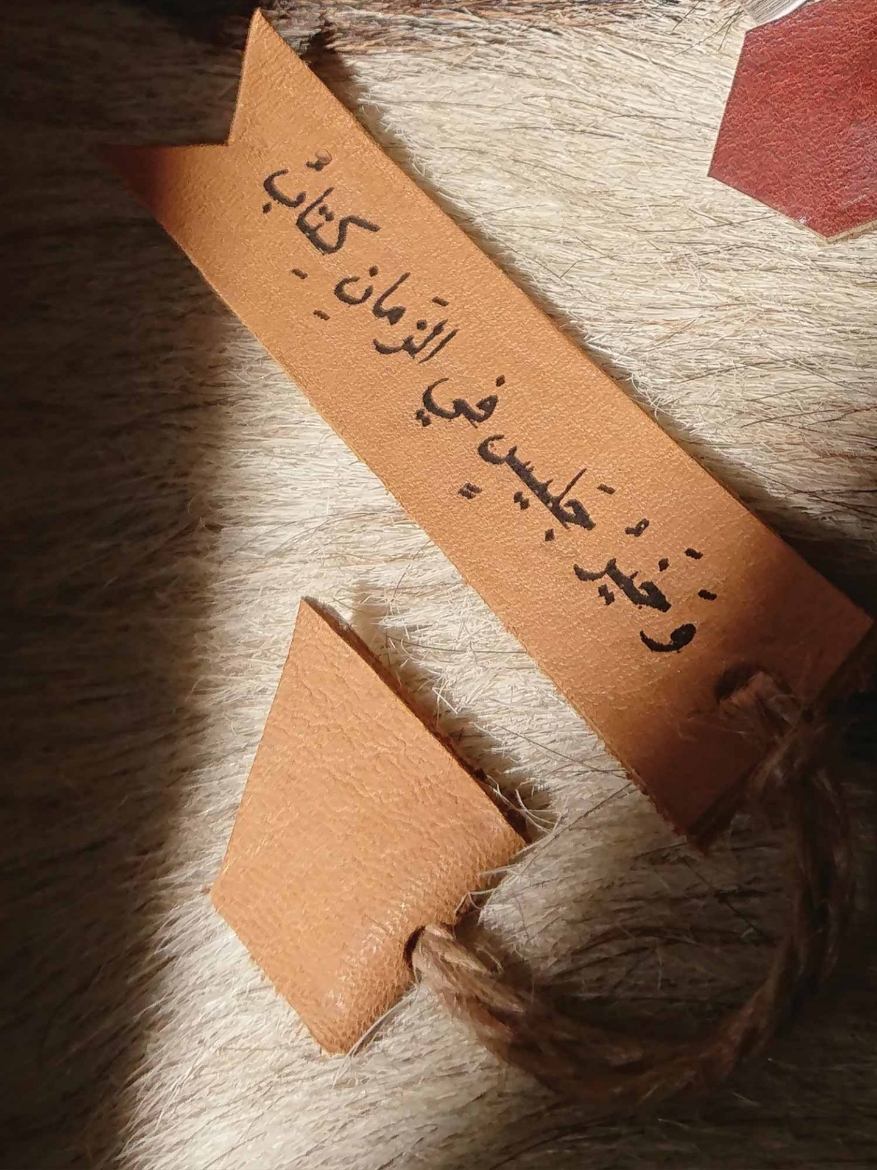 وَخَيْرُ جَليسٍ في الزَمانِ كِتابُ